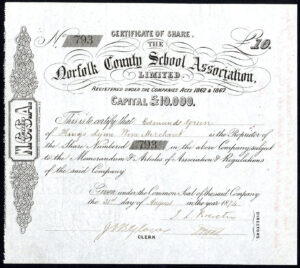 CERTIFICATE OF SHARE.
No 793
£10.
THE
Norfolk County School Association,
LIMITED.
REGISTERED UNDER THE COMPANIES ACTS 1862 & 1867
CAPITAL £10,000.
This is to certify that Edmund
of Kings Lynn Wine Merchant is the Proprietor of
the Share Numbered 793 in the above Company, subject
to the Memorandum & Articles of Association & Regulations
of the said Company.
Given under the Common Seal of the said Company
the 31st day of August in the year 1874
DIRECTORS
CLERK